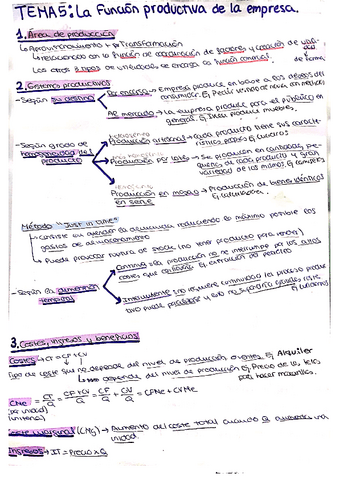 TEMA 5: La Función productiva de la empresa.
1. Área de producción
↳ Aprovisionamiento + Transformación
↳ relacionado con la función de coordinación de factores y creación de
de forma
Los otros 3 tipos de utilidad, se encarga la función comercial.
2. Sistemas productivos
- Según su destino
Por encargo → Empresa produce en base a los deseos del
consumidor. Ej Pedir vestido de novia con
Al mercado → La empresa produce para el público en
general. Ej Inditex produce muebles.
- Según grado de
homogeneidad del
producto
Producción artesanal → Cada producto tiene sus caracte-
rísticas propias. Ej cuadros
Producción por lotes → Se producen en cantidades pe-
queñas de cada producto y gran
variedad de los mismos. Ej
Producción en masa → Producción de bienes idénticos
en serie
Ej calculadoras.
Método "Just in time"
↳ consiste en atender la demanda reduciendo lo máximo posible los
gastos de almacenamiento
↳ Puede provocar rotura de stock (no tener producto para vender)
- Según la dimensión
temporal
Continua → la producción no se interrumpe por los altos
costes que conlleva. Ej extracción de petróleo
Intermitente → no requiere continuidad. El proceso produc-
tivo puede paralizarse y esto no supondría grandes costes
3. Costes, ingresos y beneficios
Costes → CT = CF + CV
Tipo de coste que no depende del nivel de producción o ventas. Ej Alquiler
↳ depende del nivel de producción. Ej Precio de las telas
para hacer mascarillas.
CMe = CT/Q = CF + CV/Q = CF/Q + CV/Q = CFMe + CVMe
(por unidad)
(unitario)
Coste marginal (CMg) → Aumento del coste total cuando Q aumenta una
unidad.
Ingresos → IT = Precio x Q